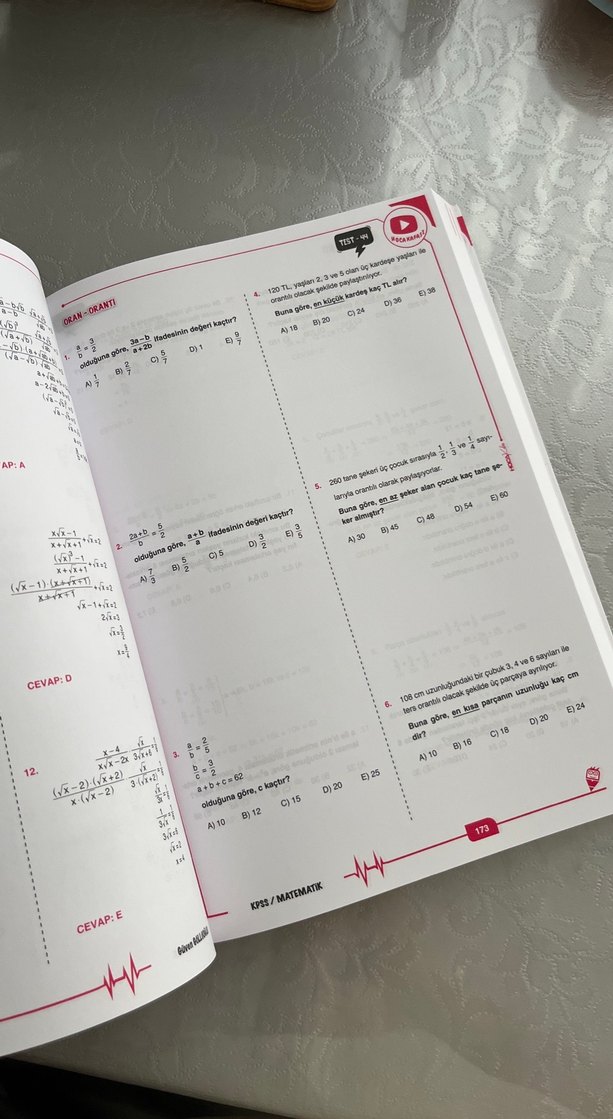 AP: A
x√x−1 / x+√x+1 +√x=2
(√x)³−1 / x+√x+1 +√x=2
(√x−1)·(x+√x+1) / x+√x+1 +√x=2
√x−1+√x=2
2√x=3
√x=3/2
CEVAP: D
12.
x−4 / x√x−2x · √x / 3√x+6 = 1/9
(√x−2)·(√x+2) / x·(√x−2) · √x / 3(√x+2)
3√x=
√x=2
x=4
CEVAP: E
Güven
ORAN - ORANTI
TEST - 44
HOCAKAFASI
1. a/b = 3/2
olduğuna göre, 3a−b / a+2b ifadesinin değeri kaçtır?
A) 1/7 B) 2/7 C) 5/7 D) 1 E) 9/7
2. 2a+b / b = 5/2
olduğuna göre, a+b / a ifadesinin değeri kaçtır?
A) 7/3 B) 5/2 C) 5 D) 3/2 E) 3/5
3. a/b = 2/5
b/c = 3/2
a + b + c = 62
olduğuna göre, c kaçtır?
A) 10 B) 12 C) 15 D) 20 E) 25
4. 120 TL, yaşları 2, 3 ve 5 olan üç kardeşe yaşları ile
orantılı olacak şekilde paylaştırılıyor.
Buna göre, en küçük kardeş kaç TL alır?
A) 18 B) 20 C) 24 D) 36 E) 38
5. 260 tane şekeri üç çocuk sırasıyla 1/2, 1/3 ve 1/4 sayı-
larıyla orantılı olarak paylaşıyorlar.
Buna göre, en az şeker alan çocuk kaç tane şe-
ker almıştır?
A) 30 B) 45 C) 48 D) 54 E) 60
6. 108 cm uzunluğundaki bir çubuk 3, 4 ve 6 sayıları ile
ters orantılı olacak şekilde üç parçaya ayrılıyor.
Buna göre, en kısa parçanın uzunluğu kaç cm
dir?
A) 10 B) 16 C) 18 D) 20 E) 24
KPSS / MATEMATİK
173